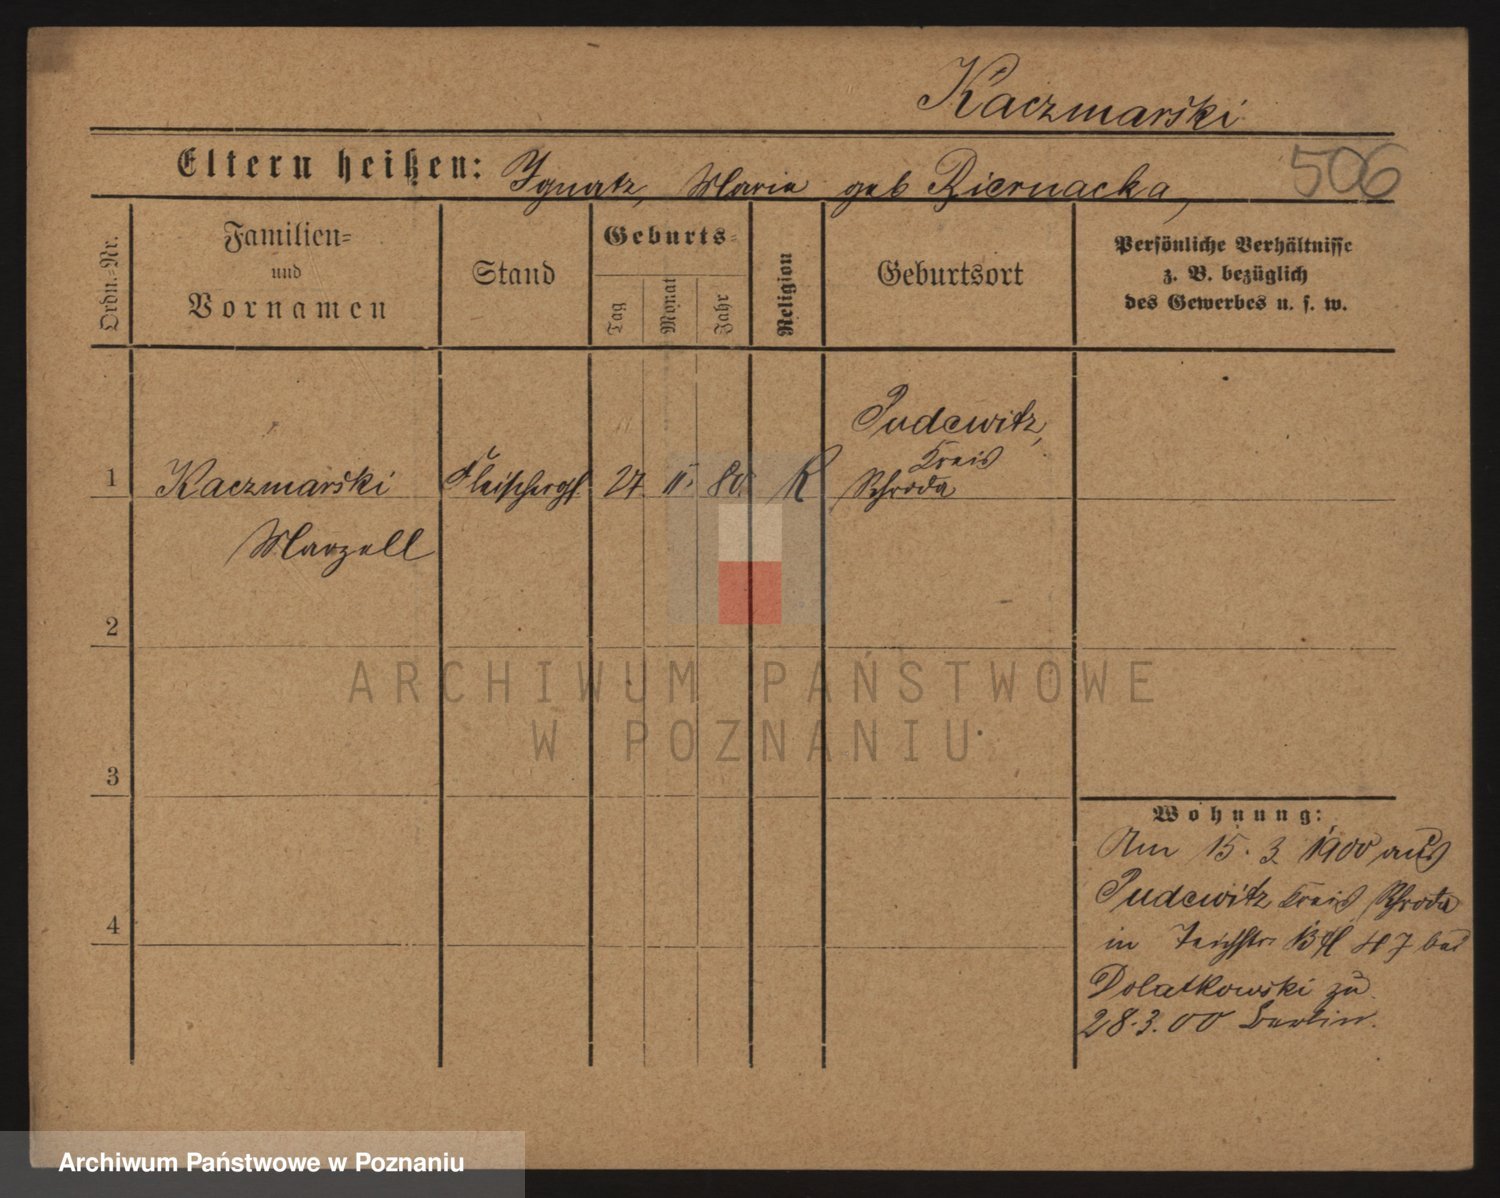 Kaczmarski
Eltern heißen: Ignatz, Maria geb Biernacka,
506
Ordn.-Nr.
Familien-
und
Vornamen
Stand
Geburts-
Tag
Monat
Jahr
Religion
Geburtsort
Persönliche Verhältnisse
z. B. bezüglich
des Gewerbes u. s. w.
Pudewitz,
Kreis
1 Kaczmarski Fleischergs. 27 II. 80. K Schroda
Marzell
2
3
4
Wohnung:
Am 15. 3. 1900 aus
Pudewitz Kreis Schroda
in Teichstr 47 bei
Dolatkowski zu.
28.3.00 Berlin.
ARCHIWUM PAŃSTWOWE
W POZNANIU
Archiwum Państwowe w Poznaniu